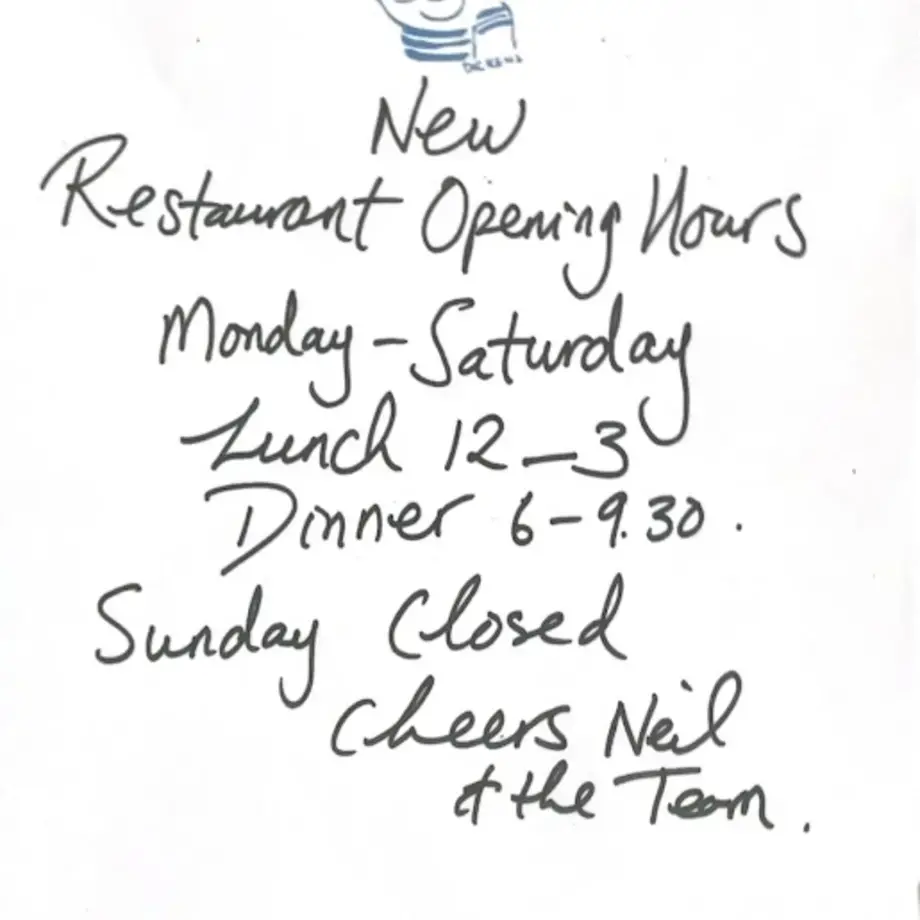 New
Restaurant Opening Hours
Monday-Saturday
Lunch 12-3
Dinner 6-9.30.
Sunday Closed
Cheers Neil
& the Team.